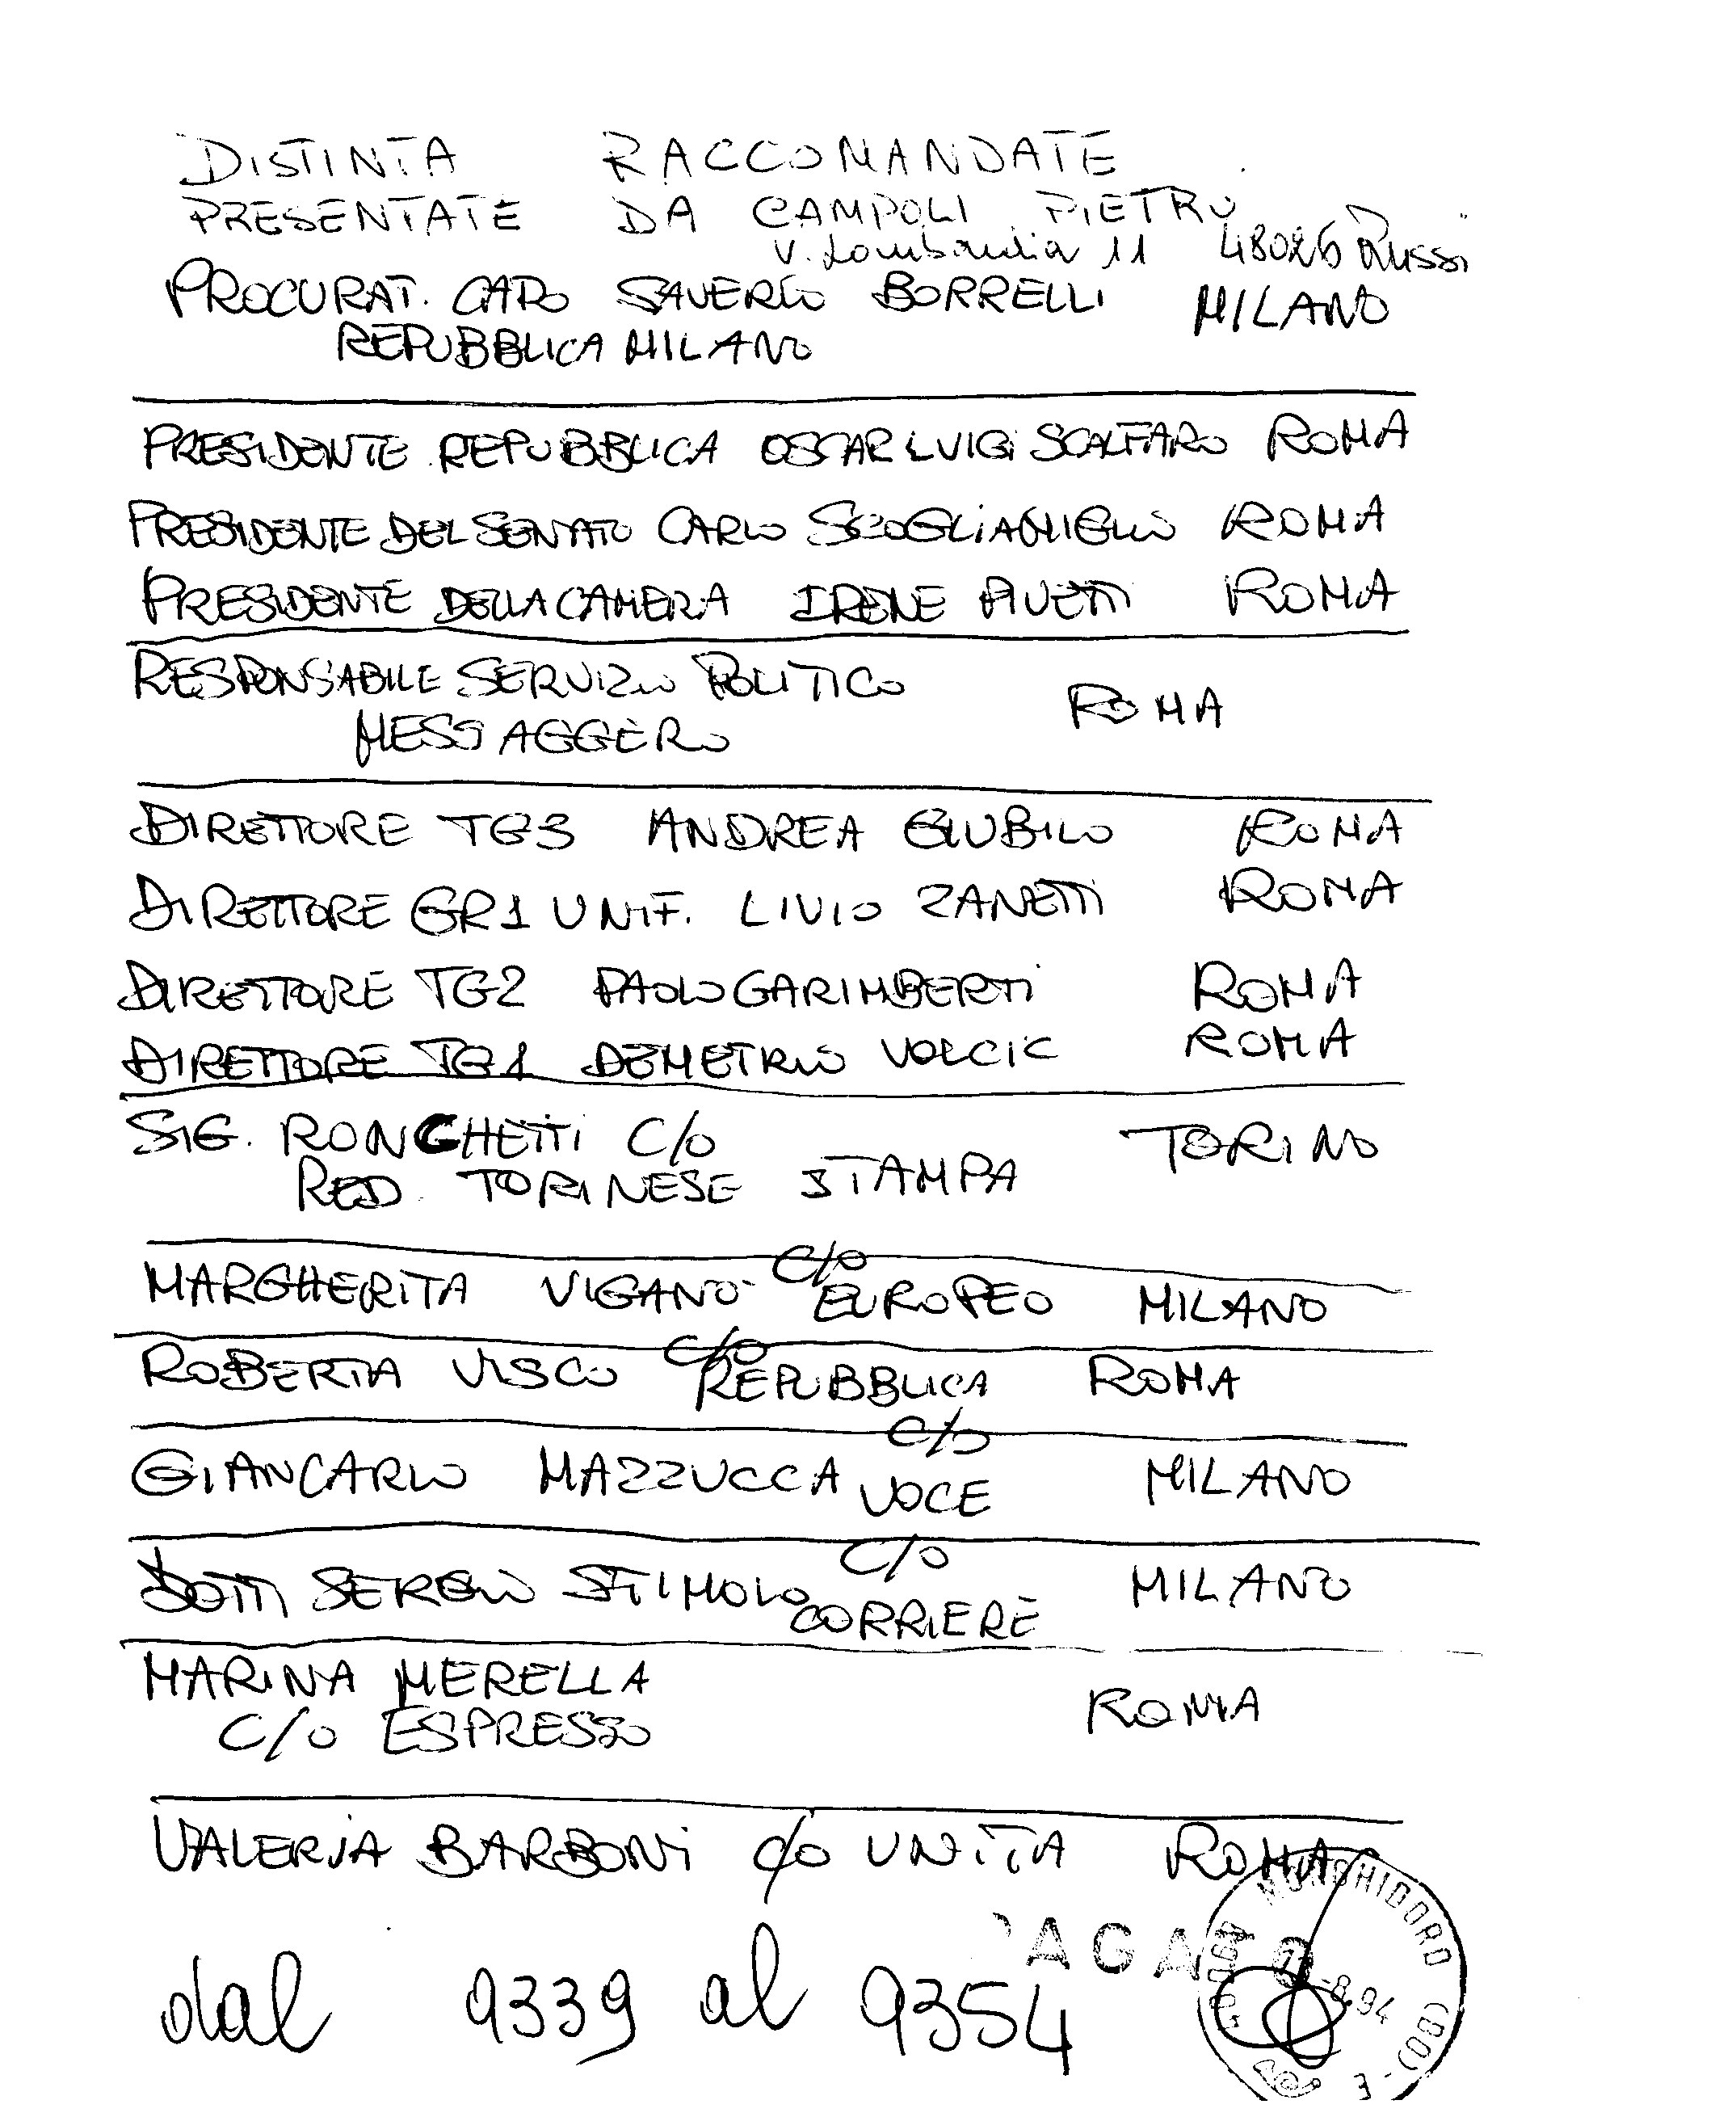 DISTINTA RACCOMANDATE
PRESENTATE DA CAMPOLI PIETRO
V. Lombardia 11 48026 Russi
PROCURAT. CAPO SAVERIO BORRELLI MILANO
REPUBBLICA MILANO
PRESIDENTE REPUBBLICA OSCAR LUIGI SCALFARO ROMA
PRESIDENTE DEL SENATO CARLO SCOGLIAMIGLIO ROMA
PRESIDENTE DELLA CAMERA IRENE PIVETTI ROMA
RESPONSABILE SERVIZIO POLITICO ROMA
MESSAGGERO
DIRETTORE TG3 ANDREA GIUBILO ROMA
DIRETTORE GR1 UNIF. LIVIO ZANETTI ROMA
DIRETTORE TG2 PAOLO GARIMBERTI ROMA
DIRETTORE TG1 DEMETRIO VOLCIC ROMA
SIG. RONCHETTI C/O TORINO
RED. TORINESE STAMPA
MARGHERITA VIGANO' C/O EUROPEO MILANO
ROBERTA VISCO C/O REPUBBLICA ROMA
GIANCARLO MAZZUCCA C/O VOCE MILANO
DOTT SERGIO STIMOLO C/O CORRIERE MILANO
MARINA MERELLA ROMA
C/O ESPRESSO
VALERIA BARBONI c/o UNITA ROMA
PAGATO
MONGHIDORO (BO)
-8.94
dal 9339 al 9354